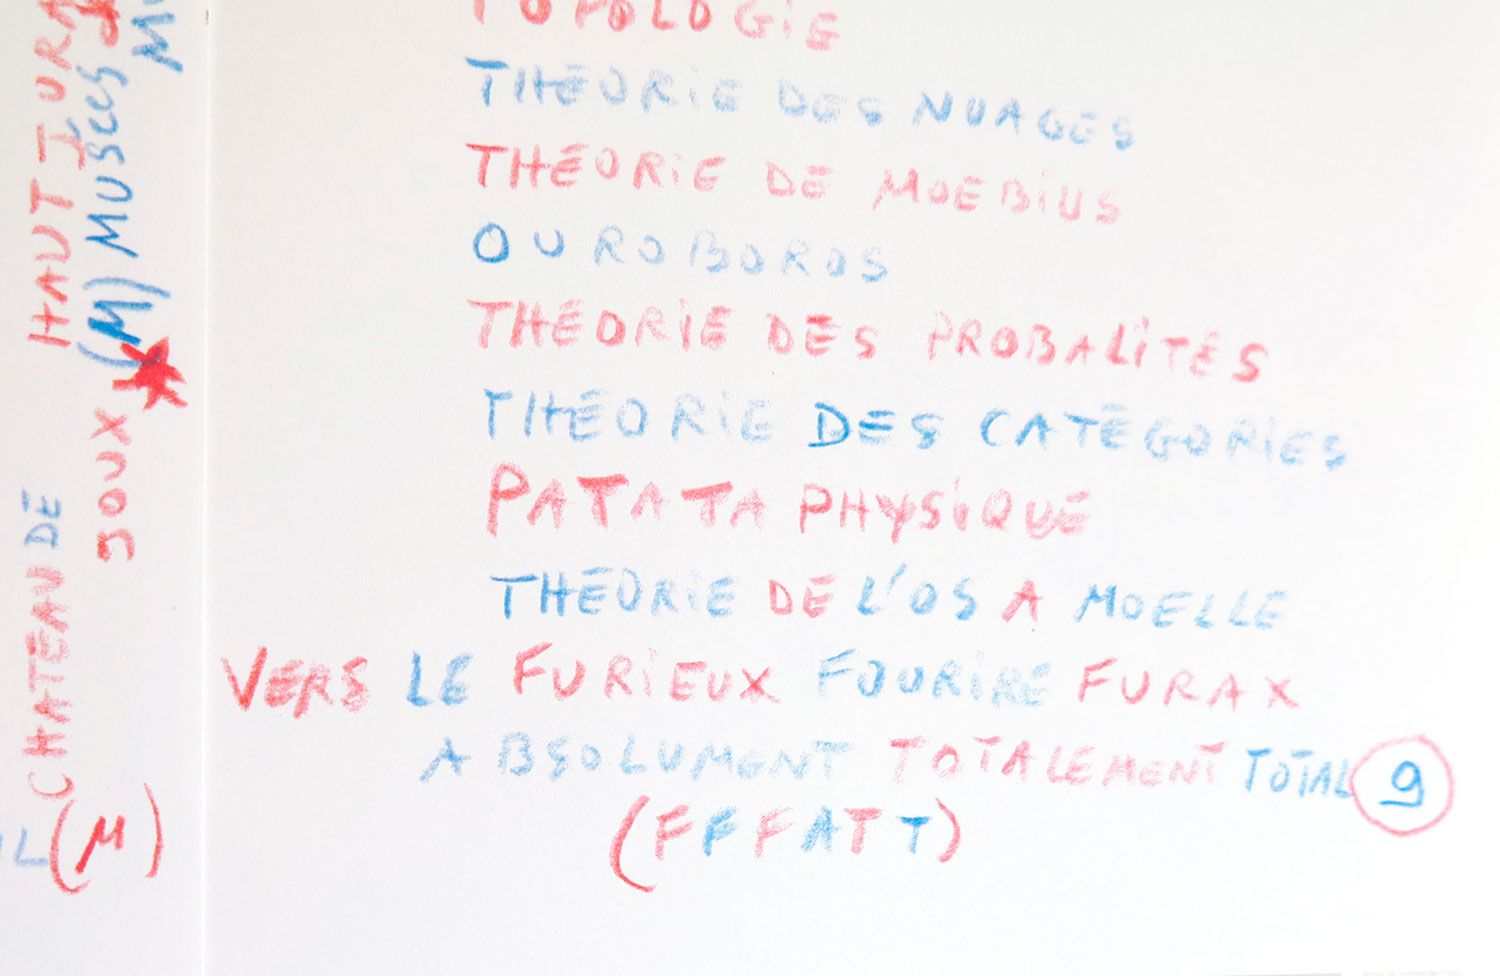 TOPOLOGIE
THÉORIE DES NUAGES
THÉORIE DE MOEBIUS
OUROBOROS
THÉORIE DES PROBALITÉS
THÉORIE DES CATÉGORIES
PATATAPHYSIQUE
THÉORIE DE L'OS A MOELLE
VERS LE FURIEUX FOURIRE FURAX
ABSOLUMENT TOTALEMENT TOTAL 9
(FFFATT)
CHATEAU DE
JOUX
(M)
HAUT JURA
(M) MUSÉES